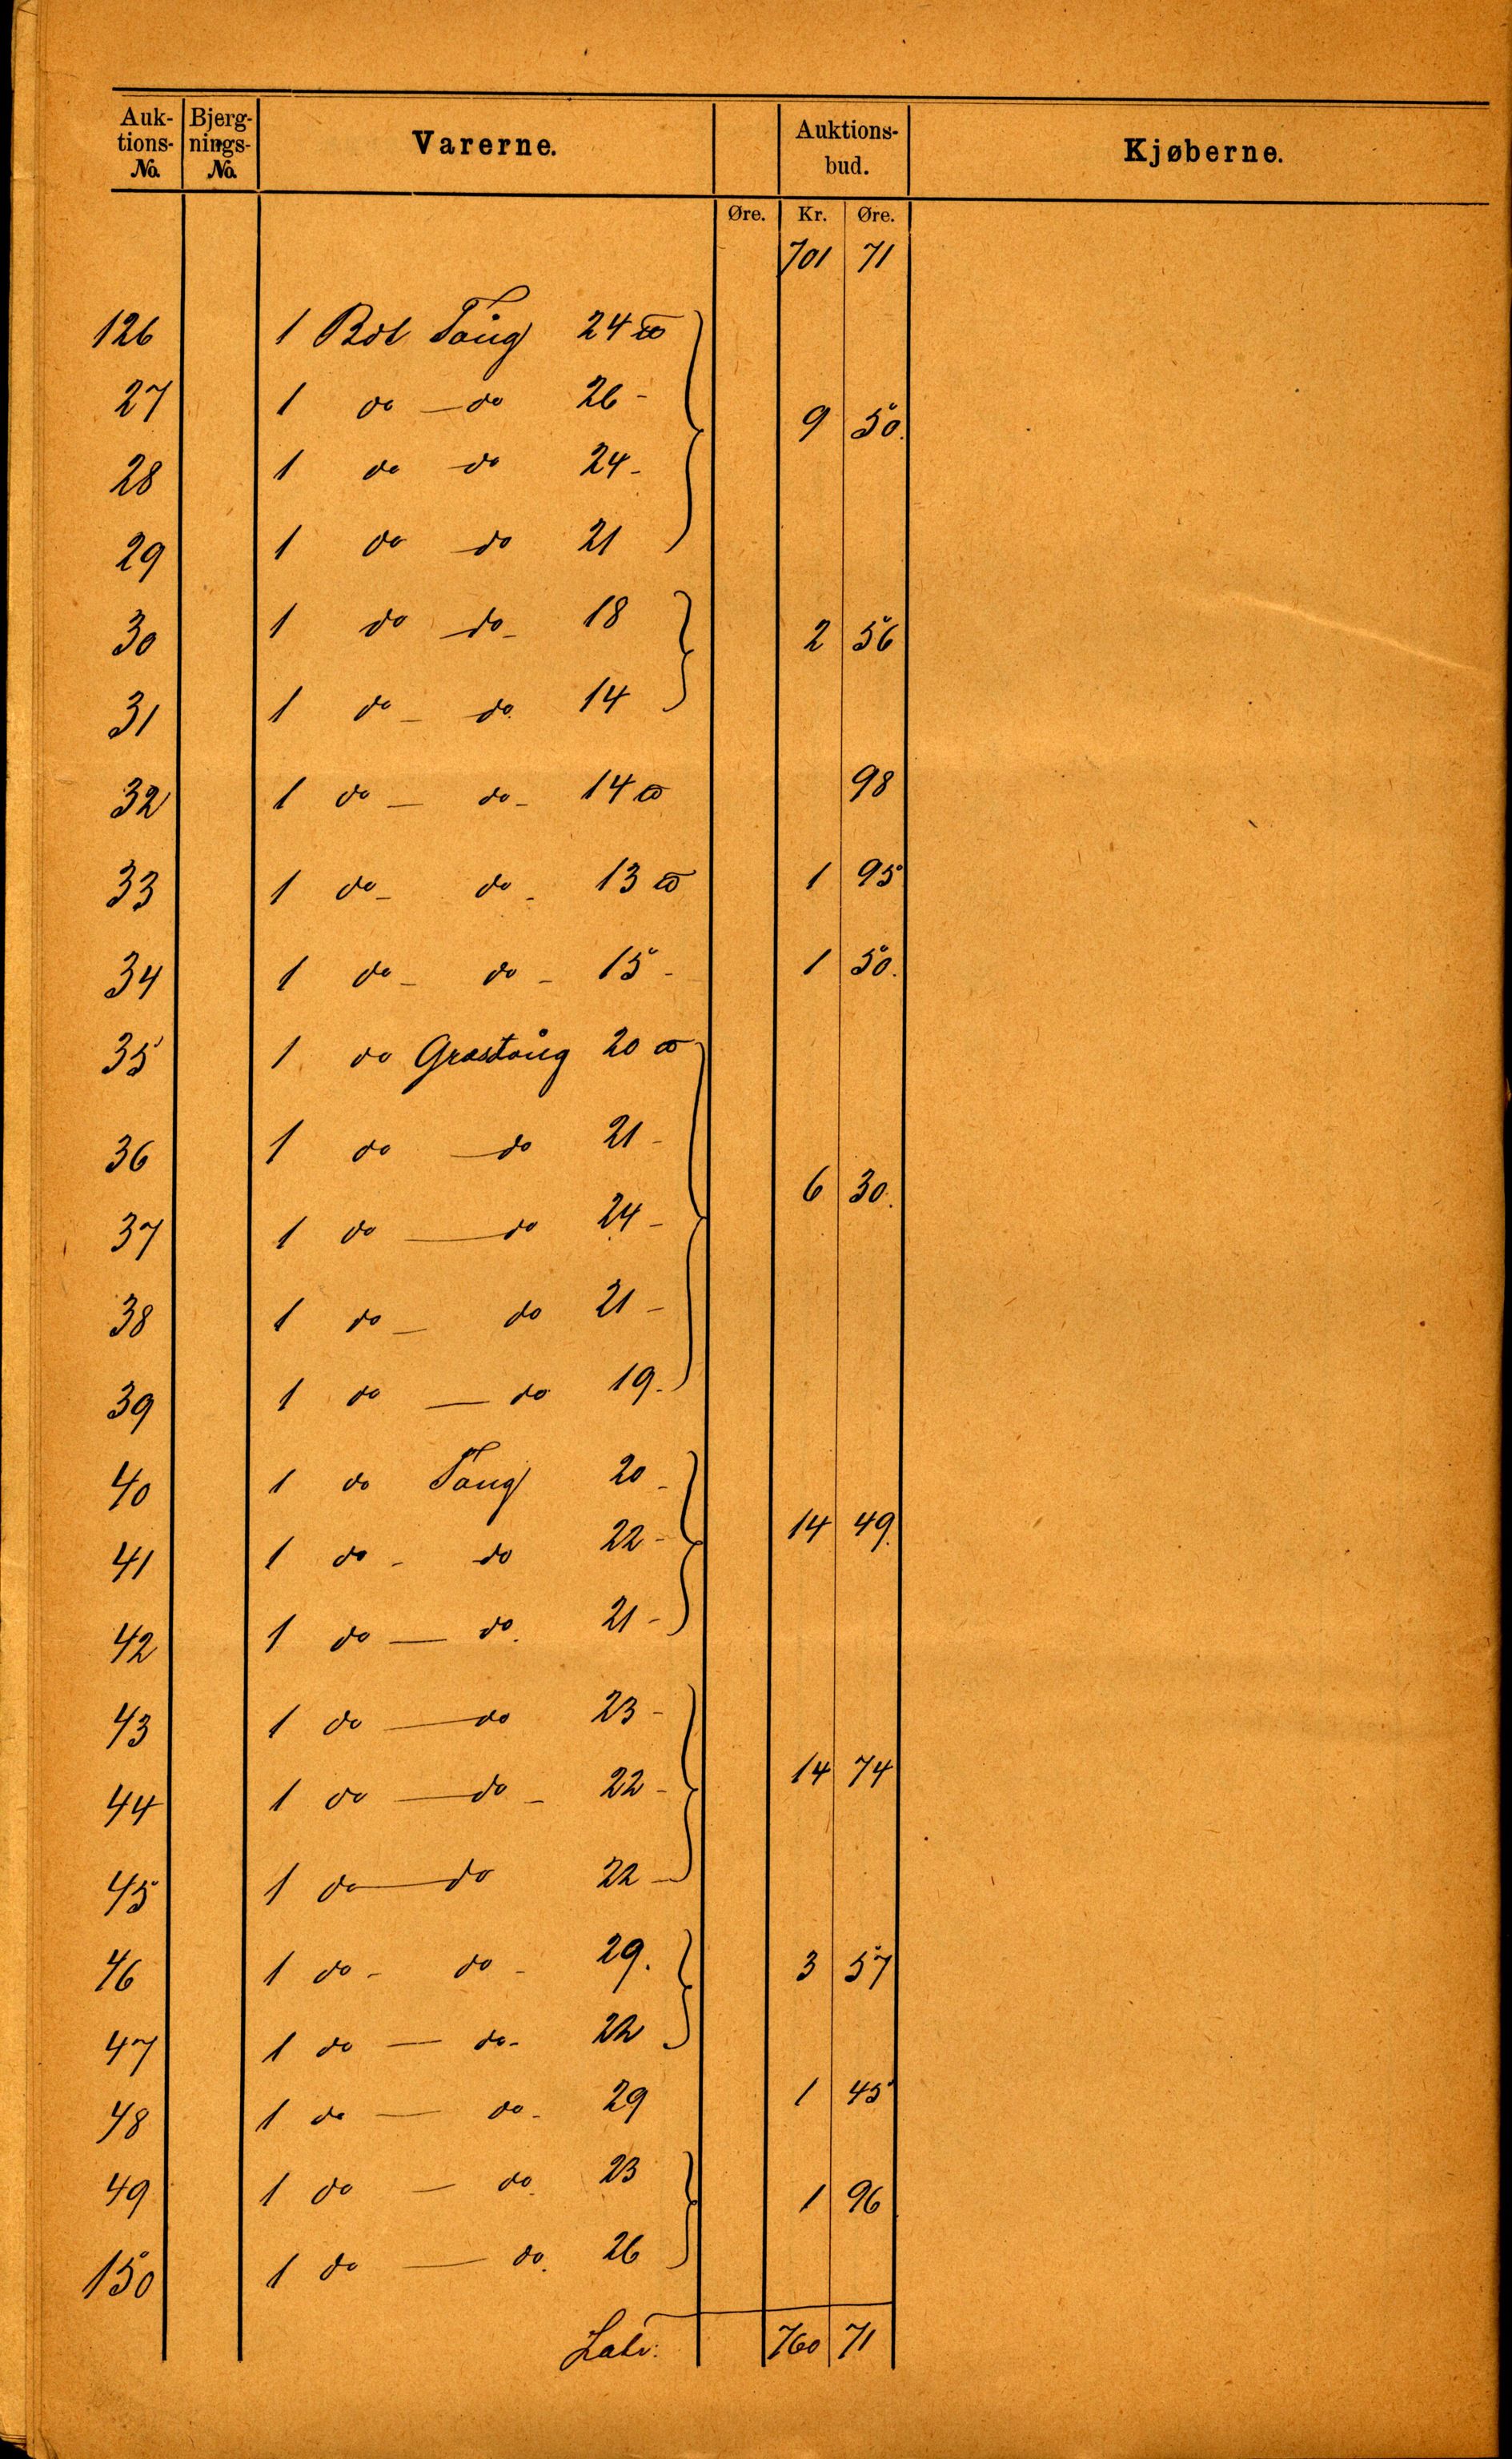 Auk-tions-No. Bjerg-nings-No. Varerne. Auktions-bud. Kjøberne.
Øre. Kr. Øre.
701 71
126 1 Bdt Toug 24 ℔
27 1 do — do 26 -
9 50.
28 1 do do 24 -
29 1 do — do 21
30 1 do — do - 18 2 56
31 1 do — do 14
32 1 do — do - 14 ℔ 98
33 1 do - do - 13 ℔ 1 95
34 1 do - do - 15 - 1 50.
35 1 do Græstoug 20 ℔
36 1 do — do 21 -
6 30.
37 1 do — do 24 -
38 1 do — do 21 -
39 1 do — do 19.-
40 1 do Toug 20 -
14 49.
41 1 do - do 22 -
42 1 do — do. 21 -
43 1 do — do 23 -
14 74
44 1 do — do - 22 -
45 1 do — do 22 -
46 1 do - do - 29. 3 57
47 1 do — do - 22
48 1 do — do - 29 1 45
49 1 do — do. 23
1 96
150 1 do — do. 26
Latr. 760 71